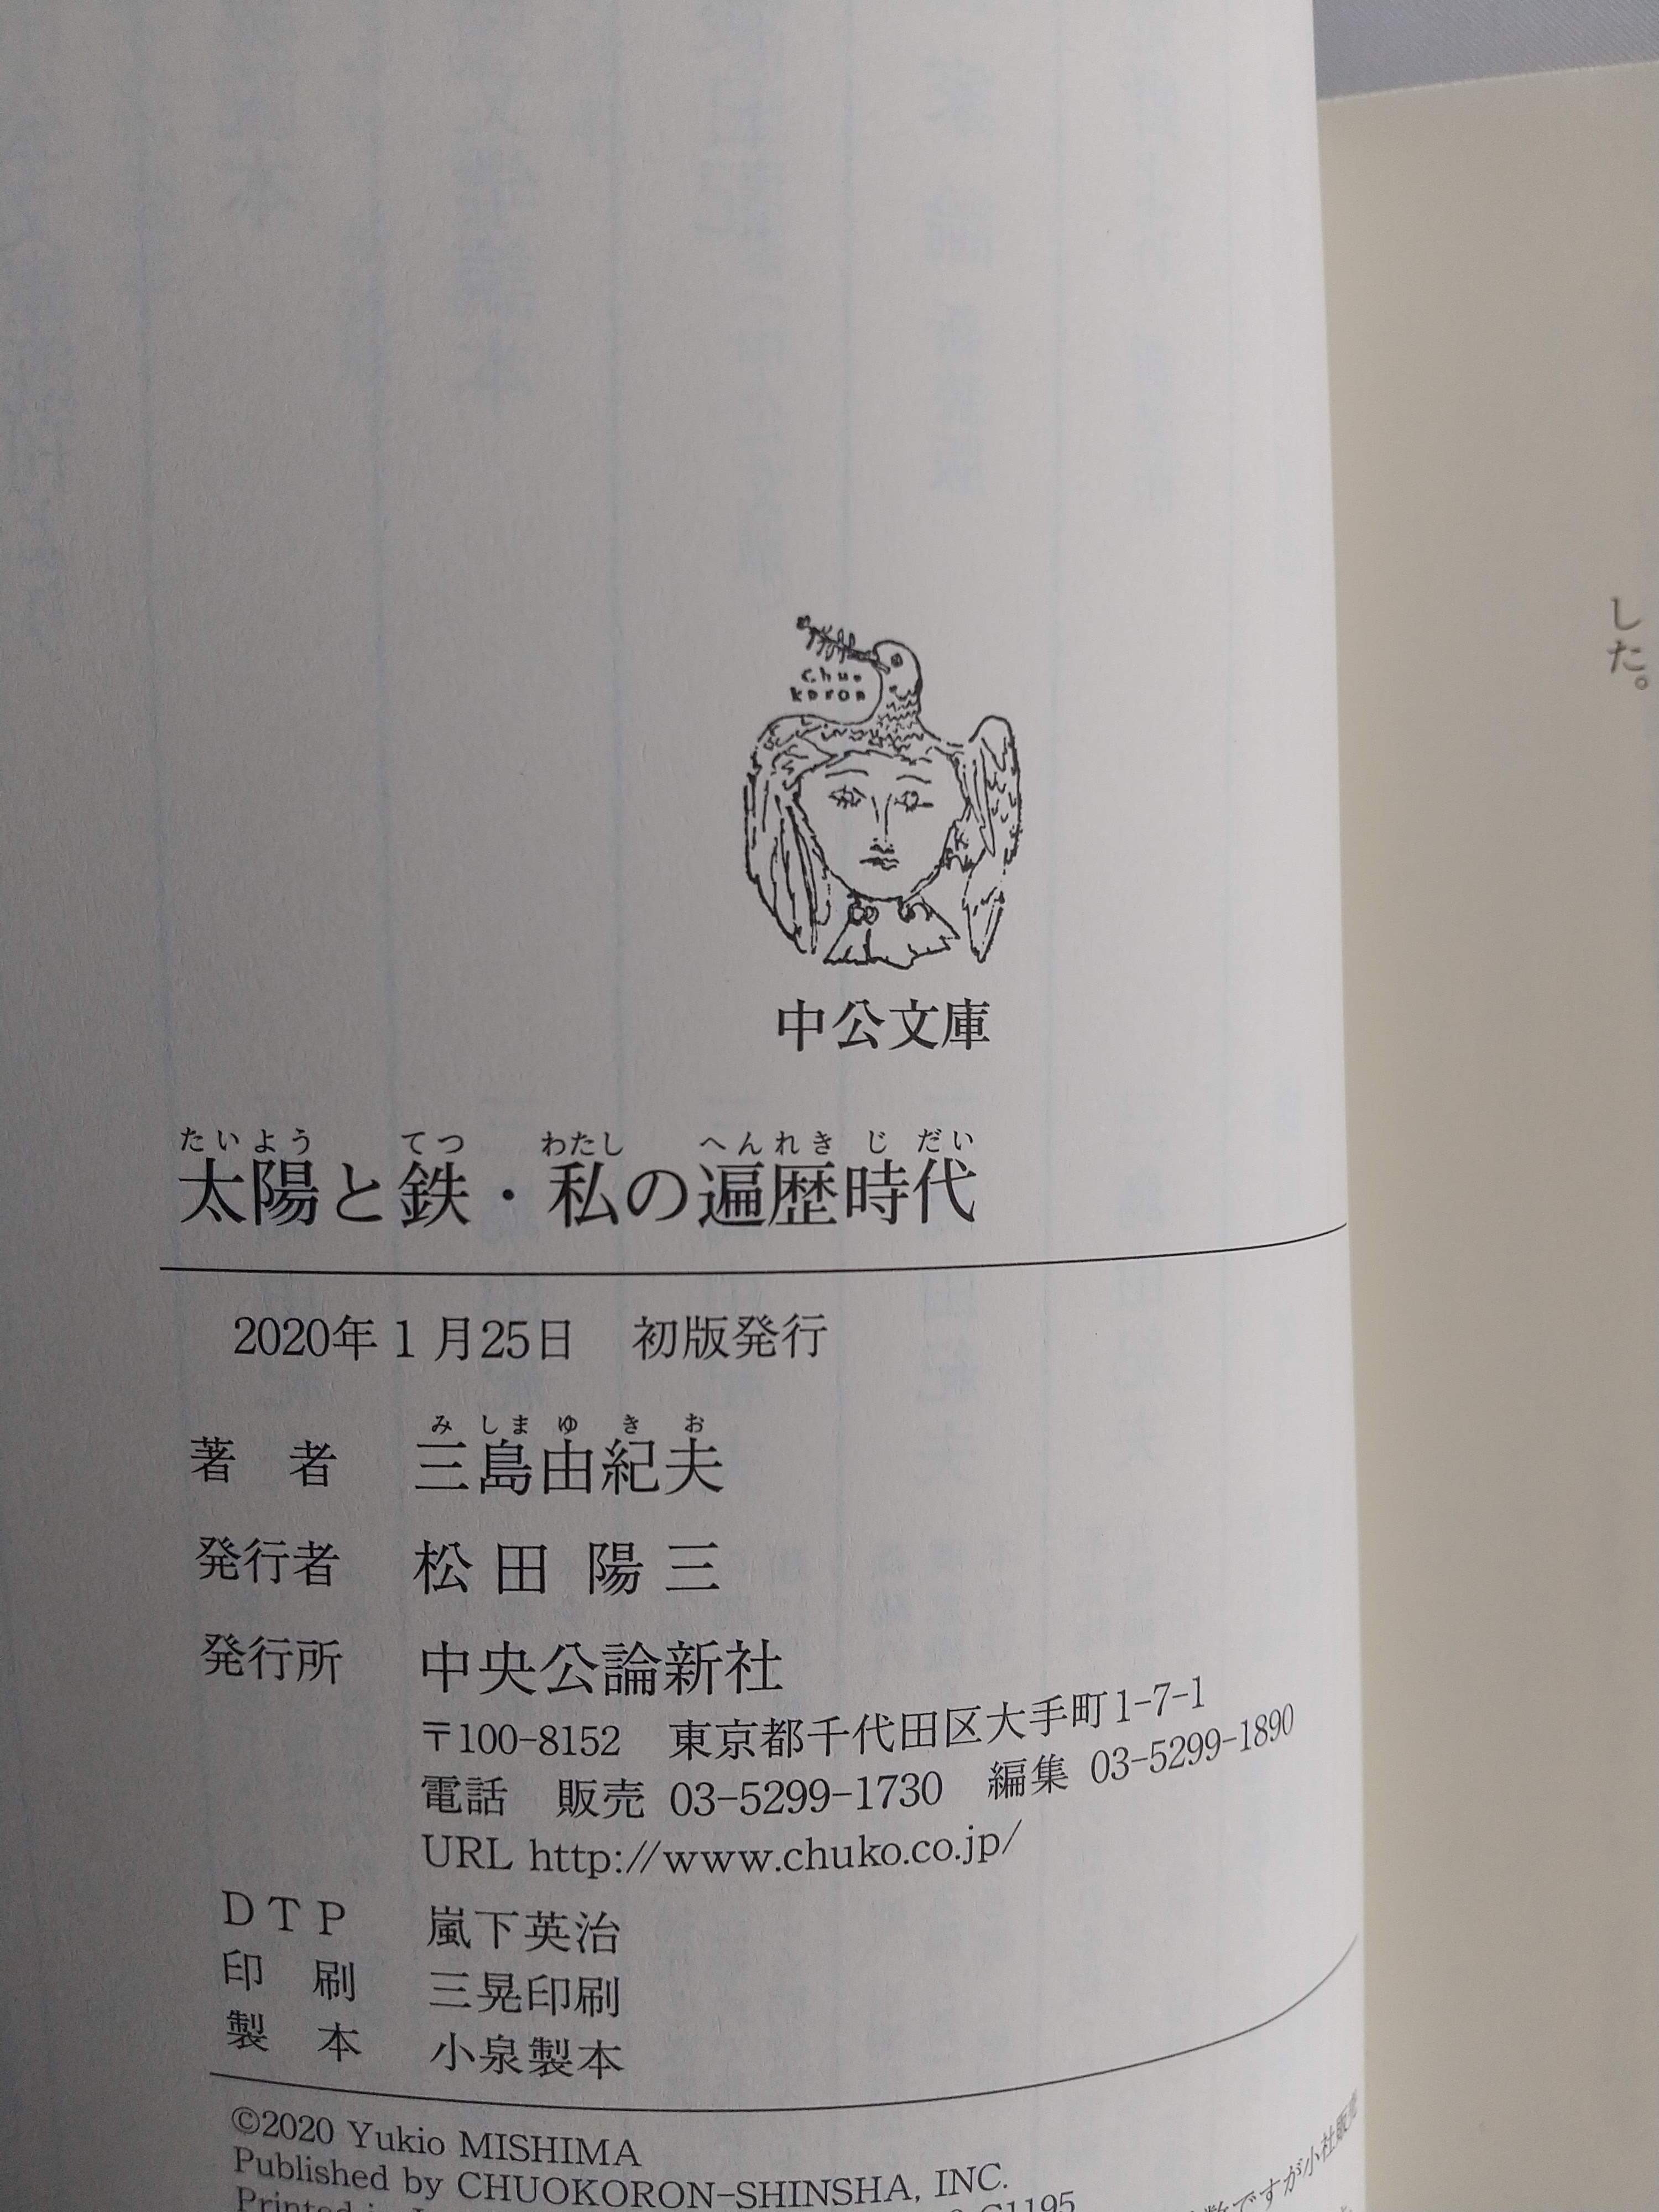 した。
Chuo
koron
中公文庫
たいよう てつ わたし へんれき じ だい
太陽と鉄・私の遍歴時代
2020年1月25日 初版発行
み しま ゆ き お
著 者 三島由紀夫
発行者 松田 陽三
発行所 中央公論新社
〒100-8152 東京都千代田区大手町1-7-1
電話 販売 03-5299-1730 編集 03-5299-1890
URL http://www.chuko.co.jp/
DTP 嵐下英治
印 刷 三晃印刷
製 本 小泉製本
©2020 Yukio MISHIMA
Published by CHUOKORON-SHINSHA, INC.
Printed in
C1195
数ですが小社販売